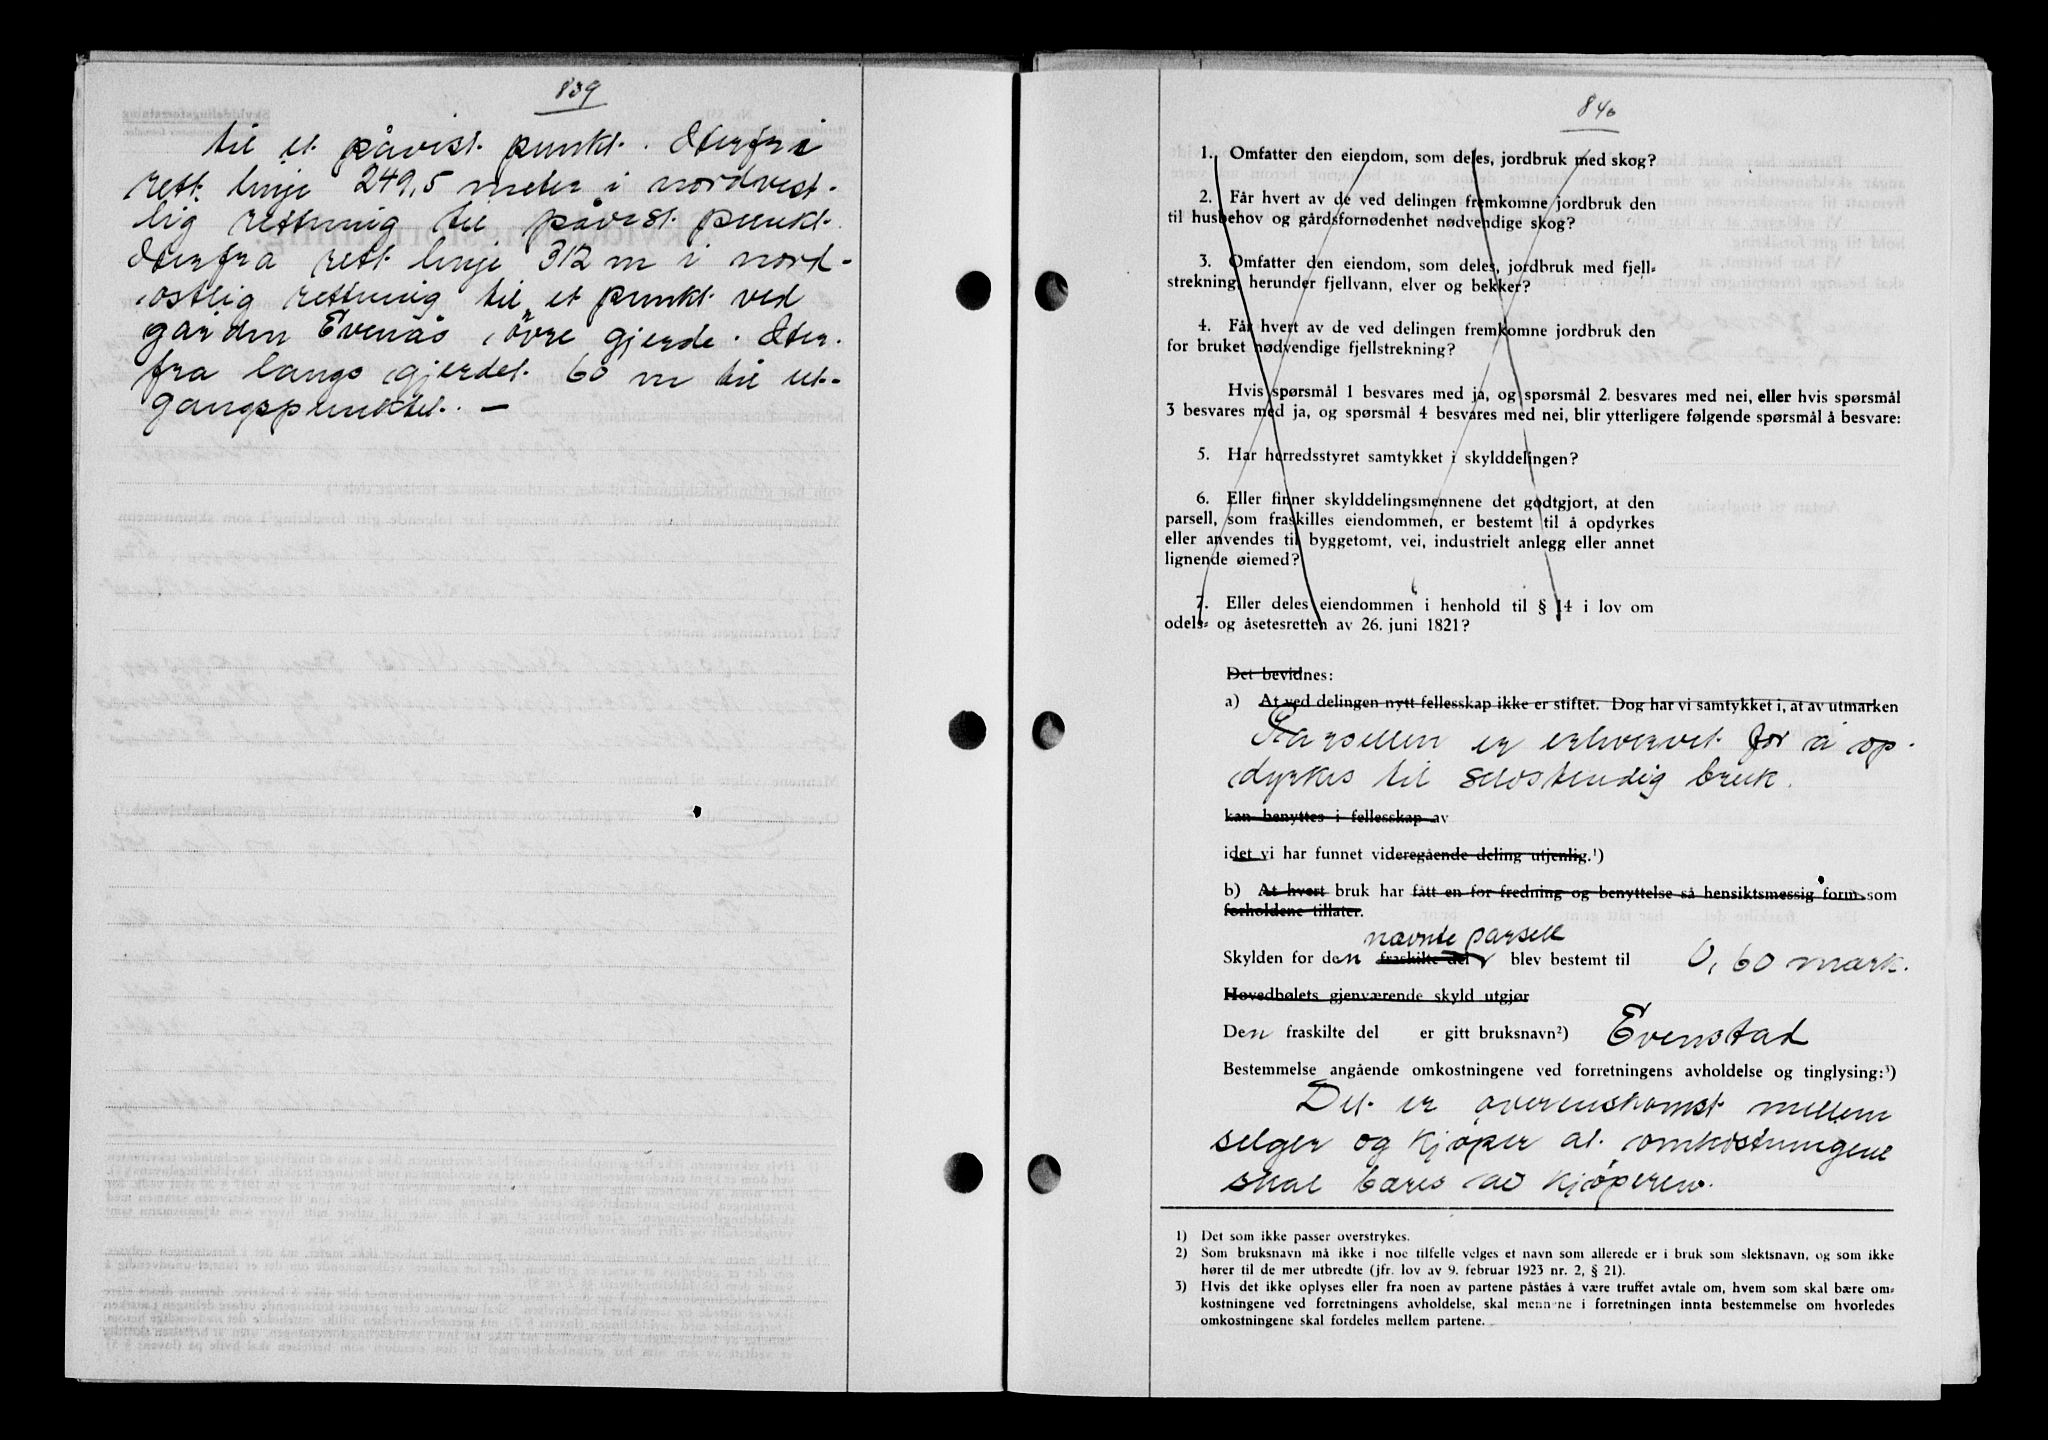 839
til et påvist punkt. Derfra i
rett linje 249,5 meter i nordvest-
lig rettning til påvist punkt.
Derfra rett linje 312 m i nord-
ostlig rettning til et punkt ved
garden Evenås øvre gjerde. Der-
fra langs gjerdet 60 m til ut-
gangspunktet. —
840
1. Omfatter den eiendom, som deles, jordbruk med skog?
2. Får hvert av de ved delingen fremkomne jordbruk den
til husbehov og gårdsfornødenhet nødvendige skog?
3. Omfatter den eiendom, som deles, jordbruk med fjell-
strekning, herunder fjellvann, elver og bekker?
4. Får hvert av de ved delingen fremkomne jordbruk den
for bruket nødvendige fjellstrekning?
Hvis spørsmål 1 besvares med ja, og spørsmål 2 besvares med nei, eller hvis spørsmål
3 besvares med ja, og spørsmål 4 besvares med nei, blir ytterligere følgende spørsmål å besvare:
5. Har herredsstyret samtykket i skylddelingen?
6. Eller finner skylddelingsmennene det godtgjort, at den
parsell, som fraskilles eiendommen, er bestemt til å opdyrkes
eller anvendes til byggetomt, vei, industrielt anlegg eller annet
lignende øiemed?
7. Eller deles eiendommen i henhold til § 14 i lov om
odels- og åsetesretten av 26. juni 1821?
Det bevidnes:
a) At ved delingen nytt fellesskap ikke er stiftet. Dog har vi samtykket i, at av utmarken
Parsellen er erhvervet for å op-
dyrkes til selvstendig bruk.
kan benyttes i fellesskap av
idet vi har funnet videregående deling utjenlig.¹)
b) At hvert bruk har fått en for fredning og benyttelse så hensiktsmessig form som
forholdene tillater.
nævnte parsell
Skylden for den fraskilte del blev bestemt til 0,60 mark.
Hovedbølets gjenværende skyld utgjør
Den fraskilte del er gitt bruksnavn²) Evenstad
Bestemmelse angående omkostningene ved forretningens avholdelse og tinglysing:³)
Det er overenskomst mellem
selger og kjøper at omkostningene
skal bæres av kjøperen.
1) Det som ikke passer overstrykes.
2) Som bruksnavn må ikke i noe tilfelle velges et navn som allerede er i bruk som slektsnavn, og som ikke
hører til de mer utbredte (jfr. lov av 9. februar 1923 nr. 2, § 21).
3) Hvis det ikke oplyses eller fra noen av partene påståes å være truffet avtale om, hvem som skal bære om-
kostningene ved forretningens avholdelse, skal mennene i forretningen innta bestemmelse om hvorledes
omkostningene skal fordeles mellem partene.